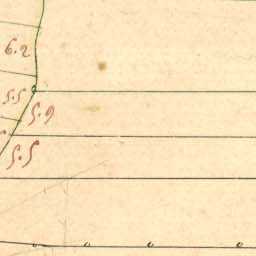 6.2
5.5
5.9
5.5